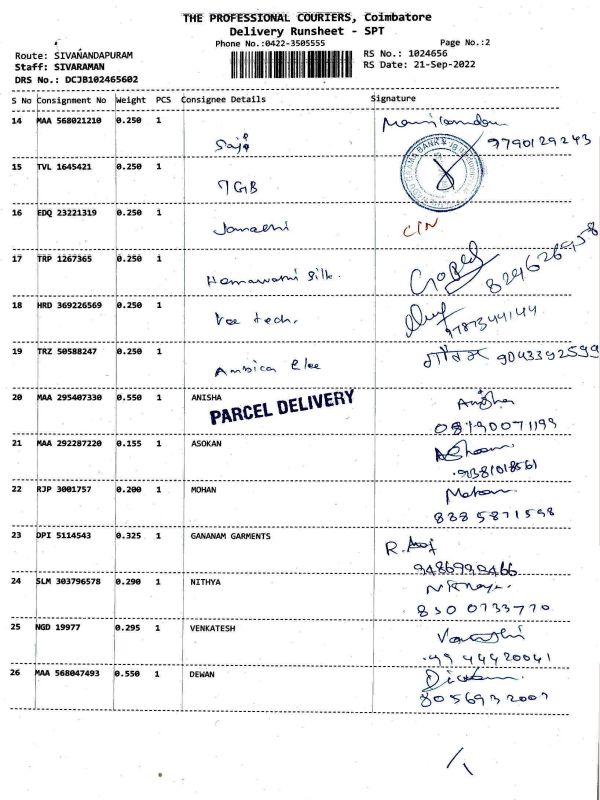 THE PROFESSIONAL COURIERS, Coimbatore
Delivery Runsheet - SPT
Phone No.:0422-3505555 Page No.:2
Route: SIVANANDAPURAM RS No.: 1024656
Staff: SIVARAMAN RS Date: 21-Sep-2022
DRS No.: DCJB102465602
S No Consignment No Weight PCS Consignee Details Signature
14 MAA 568021210 0.250 1
Saji 9790129243
15 TVL 1645421 0.250 1
TGB
16 EDQ 23221319 0.250 1
CIN
17 TRP 1267365 0.250 1
Hemawathi Silk.
18 HRD 369226569 0.250 1
Vee tech. 9787344144
19 TRZ 50588247 0.250 1
Ambica Elee गौतम 9043392599
20 MAA 295407330 0.550 1 ANISHA
PARCEL DELIVERY Anisha
08190071199
21 MAA 292287220 0.155 1 ASOKAN
9381018561
22 RJP 3001757 0.200 1 MOHAN
Mohan
8385871598
23 DPI 5114543 0.325 1 GANANAM GARMENTS
R.
9486990466
24 SLM 303796578 0.290 1 NITHYA
8300733770
25 NGD 19977 0.295 1 VENKATESH
9944420041
26 MAA 568047493 0.550 1 DEWAN
8056932007